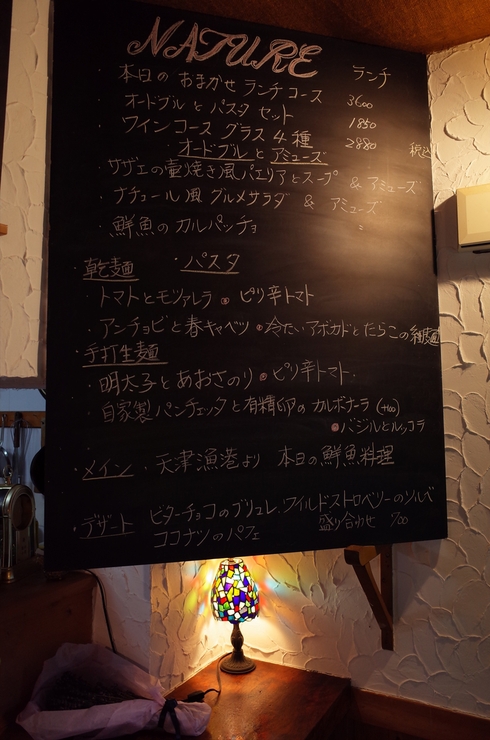 NATURE
ランチ
・本日の おまかせ ランチコース 3600
・オードブルと パスタ セット 1850
ワインコース グラス 4種 2880
税込
オードブルと アミューズ
・サザエの壷焼き風パエリアとスープ & アミューズ
・ナチュール風 グルメサラダ & アミューズ
・鮮魚の カルパッチョ 〃
・乾麺 ・パスタ
・トマトとモツァレラ ● ピリ辛トマト
・アンチョビと春キャベツ ● 冷たいアボカドとたらこの細麺
・手打生麺
・明太子とあおさのり ● ピリ辛トマト.
・自家製パンチェッタと有精卵の カルボナーラ (+100)
● バジルとルッコラ
・メイン ・天津漁港より 本日の鮮魚料理
・デザート ビターチョコのブリュレ.ワイルドストロベリーのソルベ
ココナツのパフェ 盛り合わせ 700